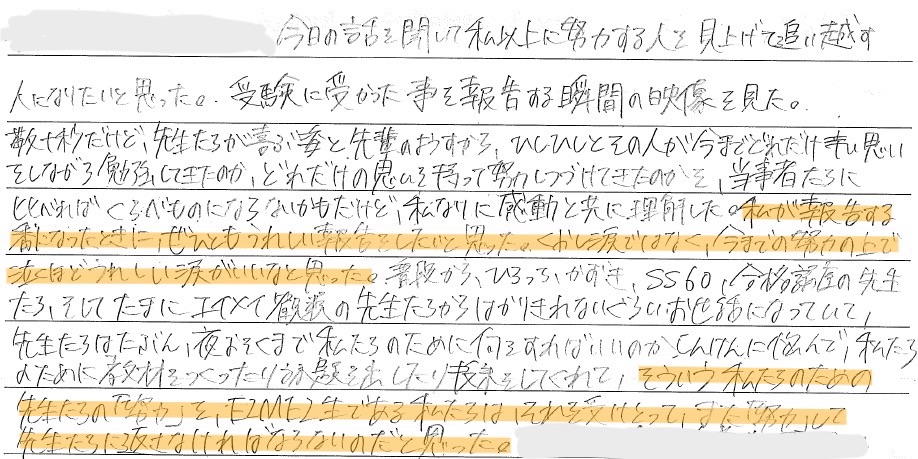 今日の話を聞いて私以上に努力する人を見上げて追い越す
人になりたいと思った。受験に受かった事を報告する瞬間の映像を見た。
数十秒だけど、先生たちが喜ぶ姿と先輩のようすから、ひしひしとその人が今までどれだけ辛い思い
をしながら勉強してきたのか、どれだけの思いを持って努力しつづけてきたのかを、当事者たちに
とくらべればくらべものにならないかもだけど、私なりに感動と共に理解した。私が報告する
番になったときに、ぜひともうれしい報告をしたいと思った。くやし涙ではなく、今までの努力の上で
泣くほどうれしい涙がいいなと思った。普段から、ひろっち、かずき、SS60、合格講座の先生
たち、そしてたまにエイメイ敷装の先生たちからはかりきれないぐらいお世話になっていて、
先生たちはたぶん、夜おそくまで私たちのために何をすればいいのかしんけんに悩んで、私たち
のために教材をつくったり宿題を出したり授業をしてくれて、そういう私たちのための
先生たちの「努力」を、生である私たちは、それを受けとって、また「努力」して
先生たちに返さなければならないのだと思った。